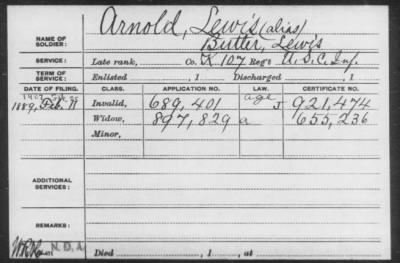 Arnold, Lewis (alias)
NAME OF SOLDIER: Butler, Lewis
SERVICE: Late rank, Co. K 107 Reg't U.S.C. Inf.
TERM OF SERVICE: Enlisted , 1 Discharged , 1
DATE OF FILING. CLASS. APPLICATION NO. LAW. CERTIFICATE NO.
1889, Feb. 11 Invalid, 689,401 age J 921,474
Widow, 897,829 a 655,236
Minor,
ADDITIONAL SERVICES:
REMARKS:
N.D.A. Died , 1 , at